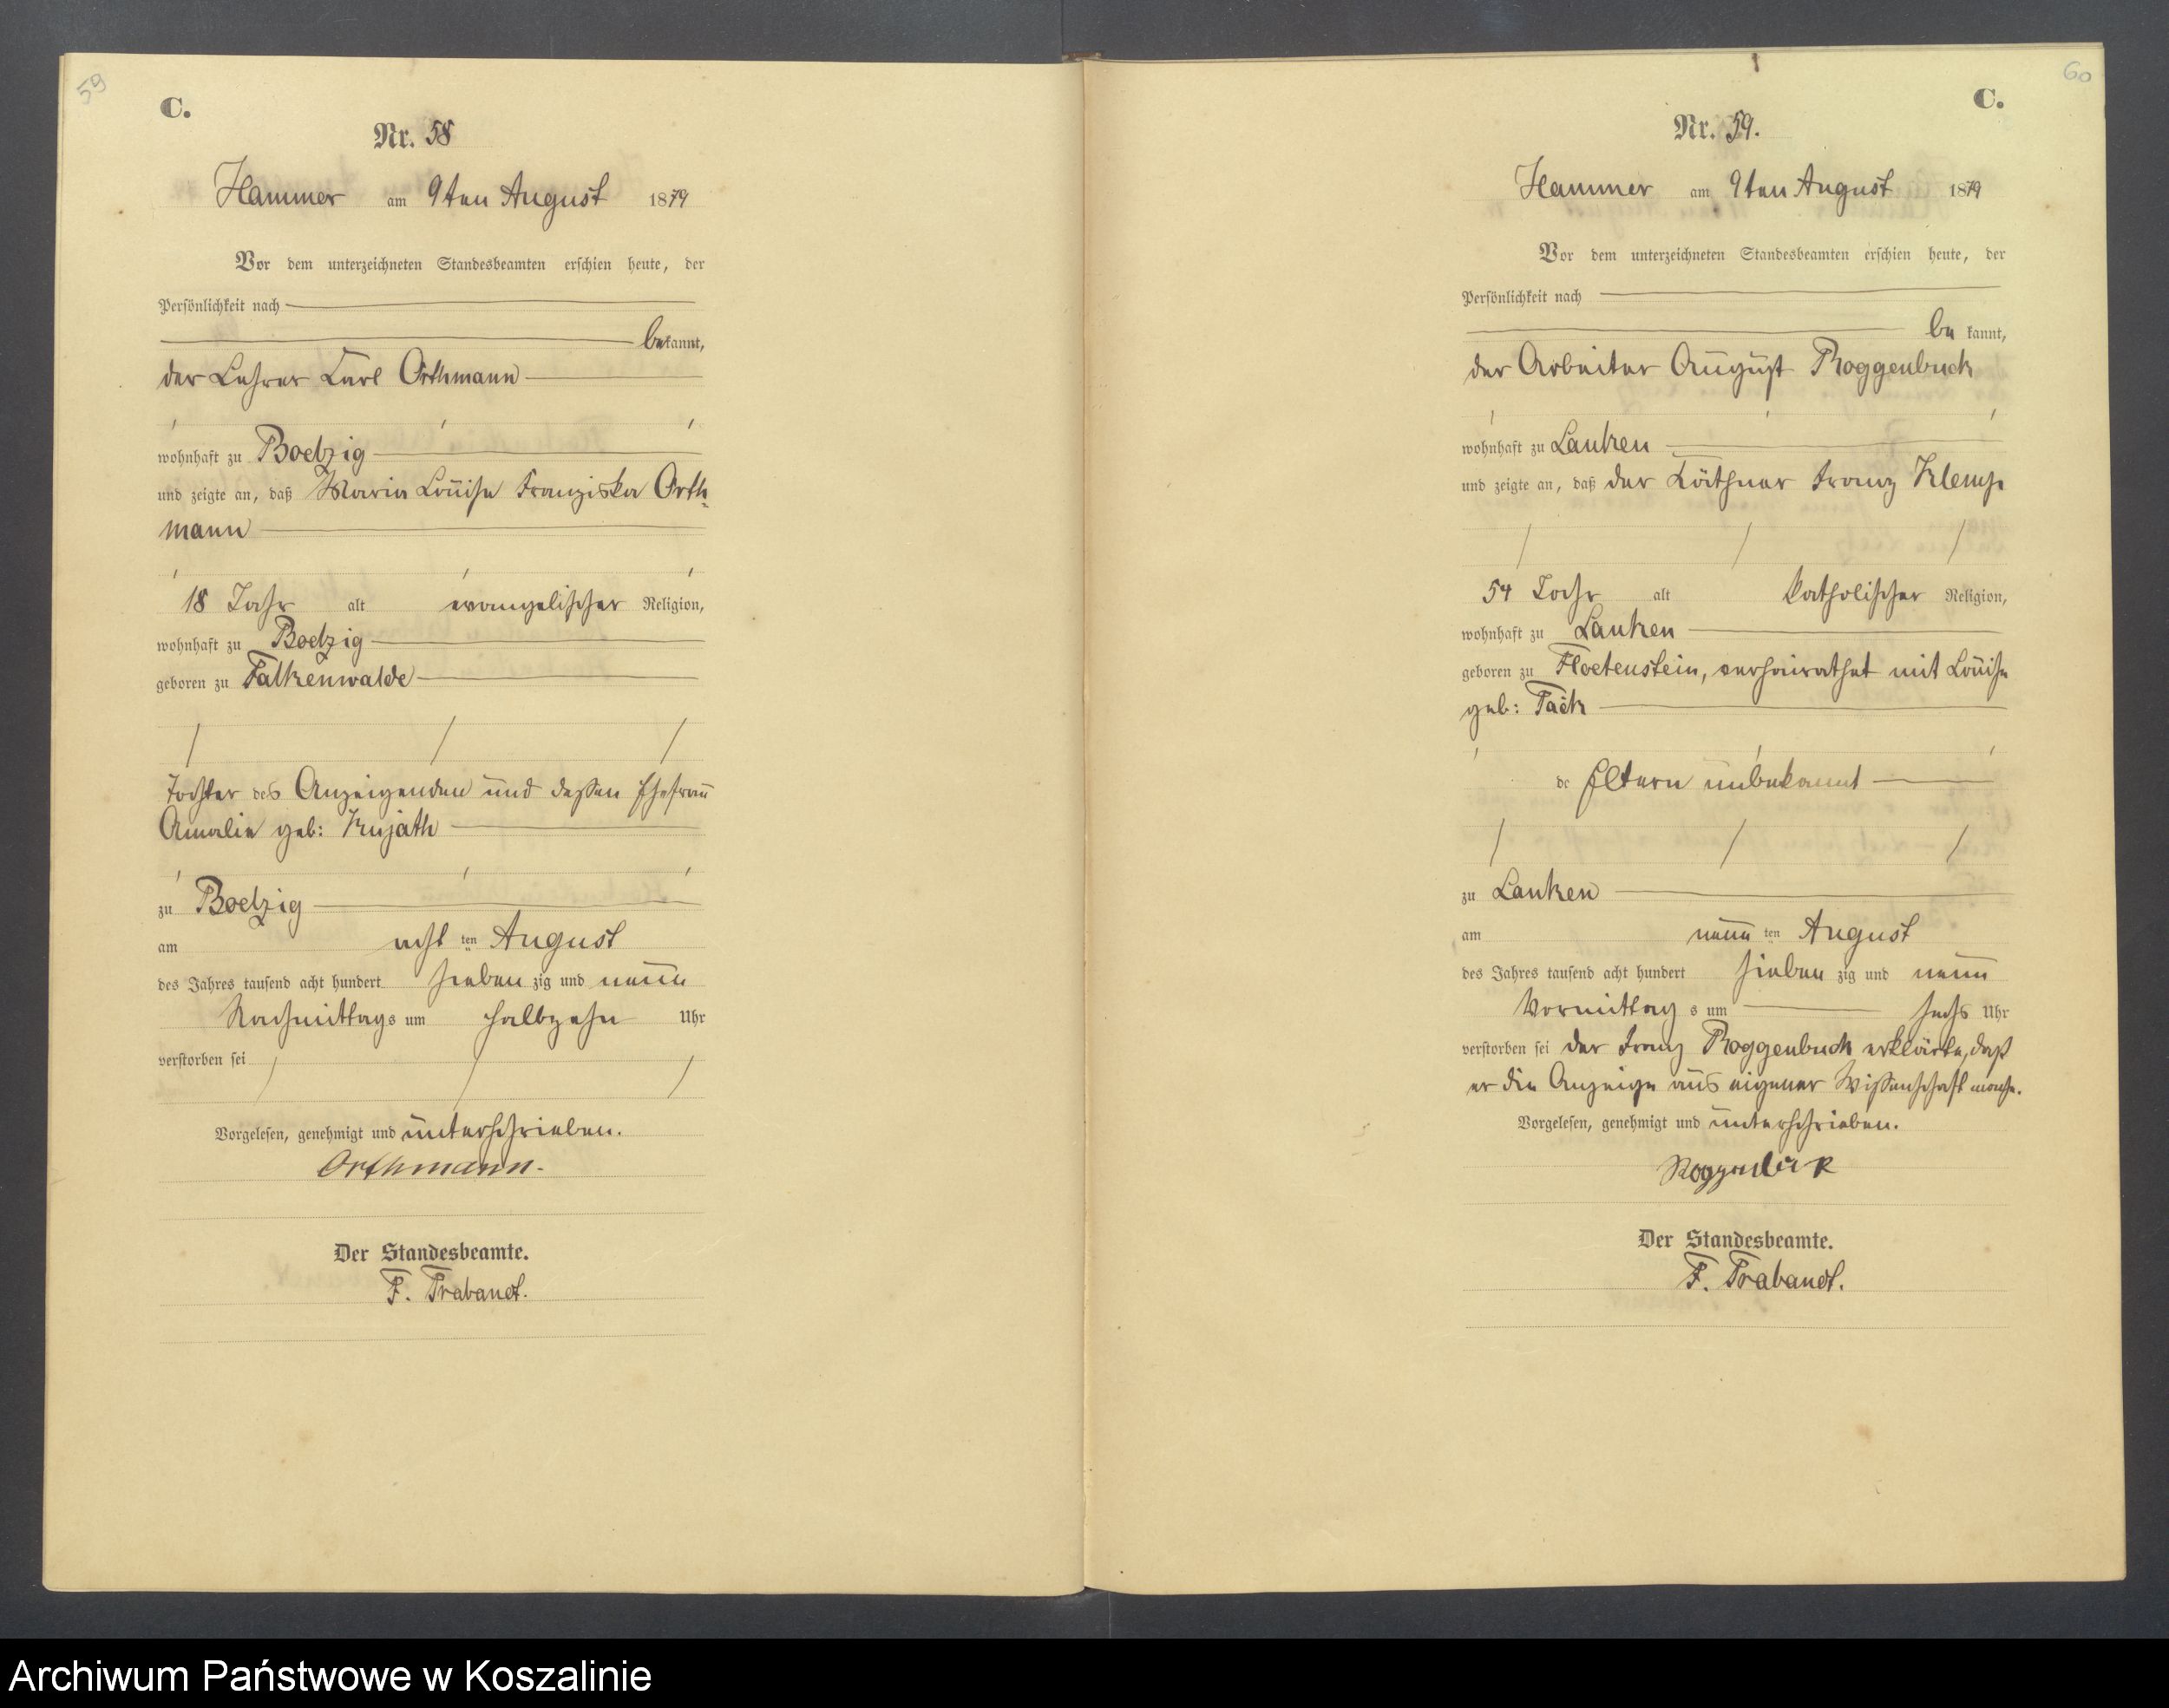 59
C.
Nr. 58
Hammer am 9ten August 1879
Vor dem unterzeichneten Standesbeamten erschien heute, der
Persönlichkeit nach
bekannt,
der Lehrer Carl Orthmann
wohnhaft zu Boelzig
und zeigte an, daß Maria Louise Franziska Orth-
mann
18 Jahr alt evangelischer Religion,
wohnhaft zu Boelzig
geboren zu Falkenwalde
Tochter des Anzeigenden und dessen Ehefrau
Amalie geb: Kujath
zu Boelzig
am acht ten August
des Jahres tausend acht hundert sieben zig und neun
Nachmittags um halbzehn Uhr
verstorben sei
Vorgelesen, genehmigt und unterschrieben.
Orthmann.
Der Standesbeamte.
F. Trabandt.
60
C.
Nr. 59.
Hammer am 9ten August 1879
Vor dem unterzeichneten Standesbeamten erschien heute, der
Persönlichkeit nach
be kannt,
der Arbeiter August Roggenbuck
wohnhaft zu Lanken
und zeigte an, daß der Käthner Franz Klemp
54 Jahr alt katholischer Religion,
wohnhaft zu Lanken
geboren zu Floetenstein, verheirathet mit Louise
geb:
de Eltern unbekannt
zu Lanken
am neun ten August
des Jahres tausend acht hundert sieben zig und neun
Vormittag s um sechs Uhr
verstorben sei der Franz Roggenbuck erklärte, daß
er die Anzeige aus eigener Wissenschaft mache.
Vorgelesen, genehmigt und unterschrieben.
Roggenbuk
Der Standesbeamte.
F. Trabandt.
Archiwum Państwowe w Koszalinie